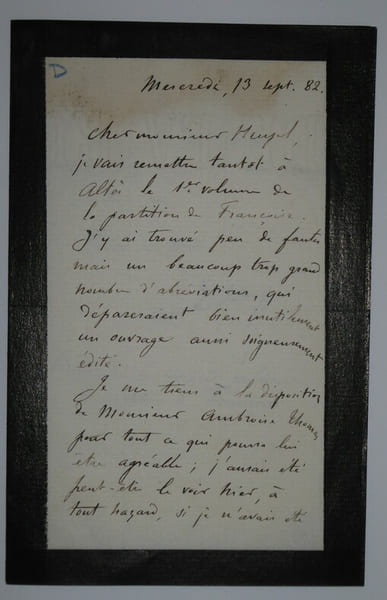 D
Mercredi, 13 sept. 82.
Cher monsieur Heugel,
je vais remettre tantôt à
le 1er volume de
la partition de Françoise.
J'y ai trouvé peu de fautes
mais un beaucoup trop grand
nombre d'abréviations, qui
dépareraient bien inutilement
un ouvrage aussi soigneusement
édité.
Je me tiens à la disposition
de Monsieur Ambroise Thomas
pour tout ce qui pourra lui
être agréable ; j'aurais été
peut-être le voir hier, à
tout hazard, si je n'avais été